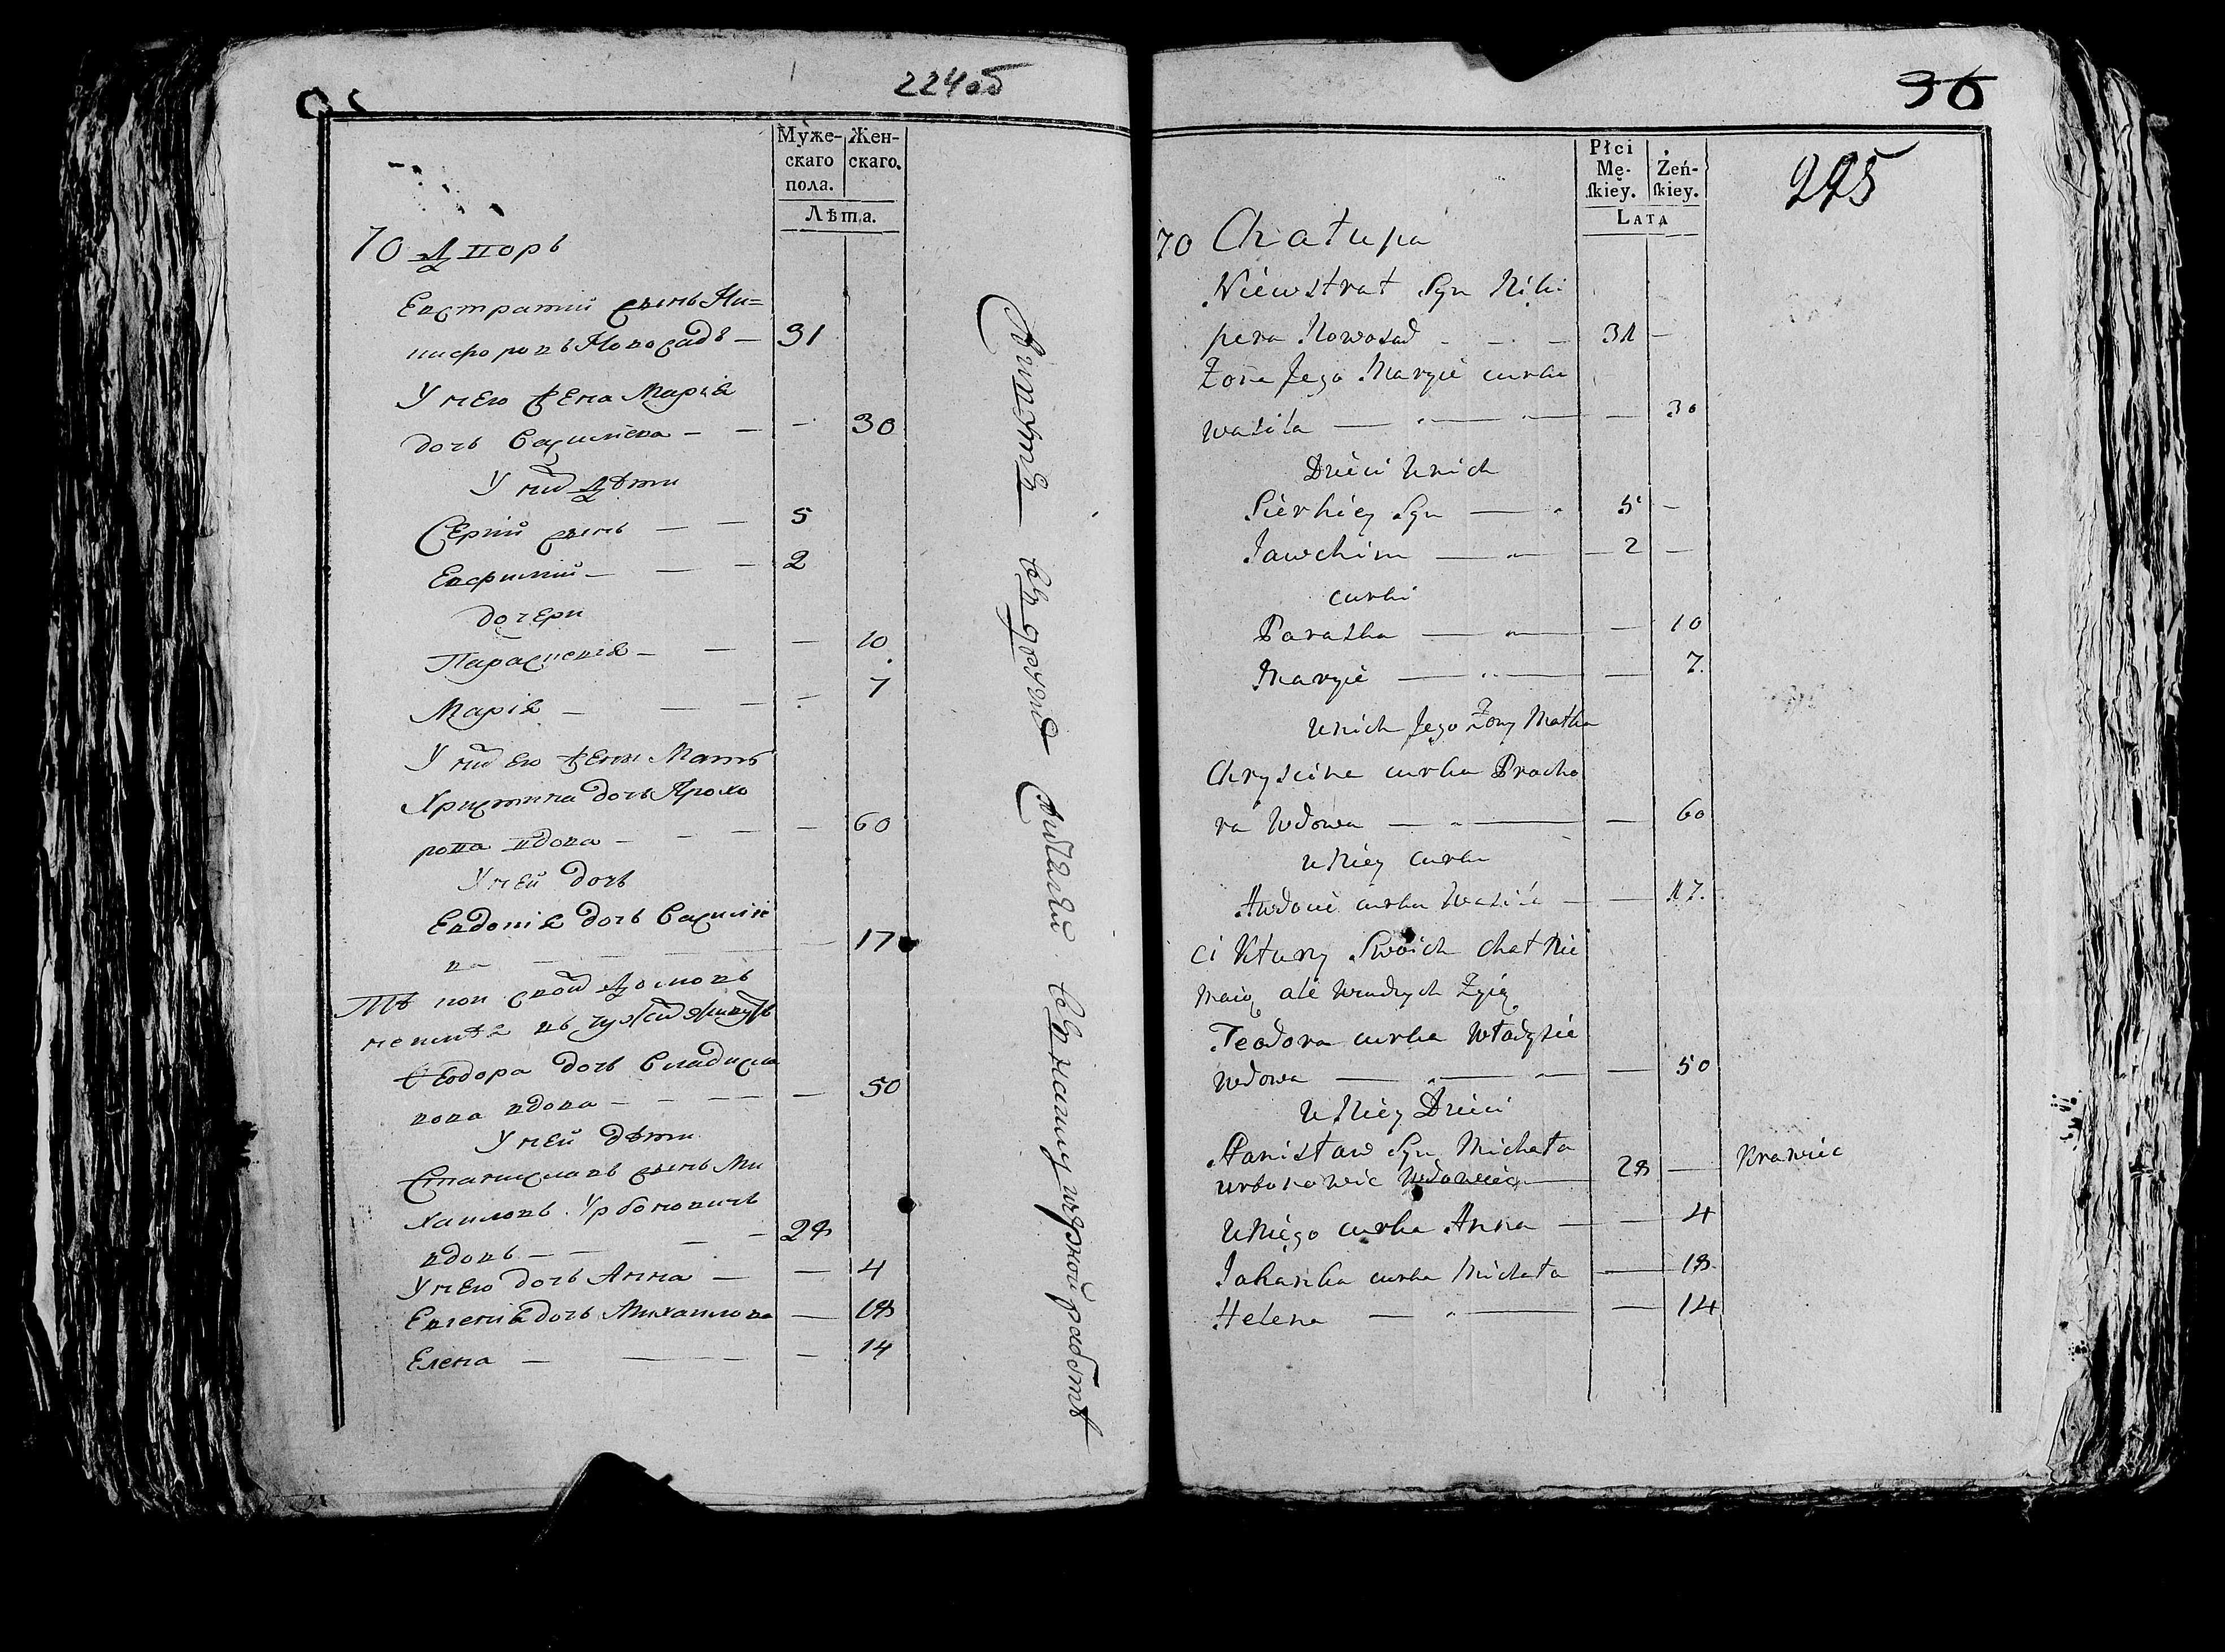 224об
Муже-
скаго
пола.
Жен-
скаго.
Лѣта.
70 Дворъ
Евстратий сынъ Ни=
кифоровъ Новосадъ — 31
У него жена Мария
дочь Василиева — — — 30
У них дѣти
Сергий сынъ — — 5
Евфимий — — — 2
дочери
Параскевия — — — 10
Мария — — — 7
У них его жены Мать
Христина дочь Прохо
рова вдова — — — 60
У ней дочь
Евдокия дочь Василие
ва — — 17
Тѣ кои своих домовъ
в чужих живутъ
Феодора дочь Владисла
вова вдова — — — — 50
У ней дѣти
Станиславъ сынъ Ми
хаиловъ Урбановичъ
вдовъ — — — 28
У него дочь Анна — — 4
Евгения дочь Михаилова — 18
Елена — — — 14
36
225
Płci
Mę-
skiey.
Żeń-
skiey.
Lata
70 Chałupa
Niewstrat Syn Niki
pera Nowosad - - — 31 —
Żona Jego Maryie curka
Wasila — " — " — — 30
Dzieci Unich
Sierhiey Syn — " 5 —
Jawchim — " — 2 —
curki
Paraska — " — — 10
Maryie — " — — 7.
Unich Jego Żony Matka
Chryscina curka Procho
ra Wdowa — " — — 60
U Niey curka
Awdocie curka Wasila — — 17.
Ci Ktury Swoich chat Nie
maią ale Wcudzych Żyią
Teodora curka Władysie
Wdowa — " — " — — 50
U Niey Dzieci
Stanisław Syn Michała
Urbanowic Wdowiec — 28 — Krawiec
U Niego curka Anna — — 4
Johanka curka Michała — 18.
Helena — " — — 14